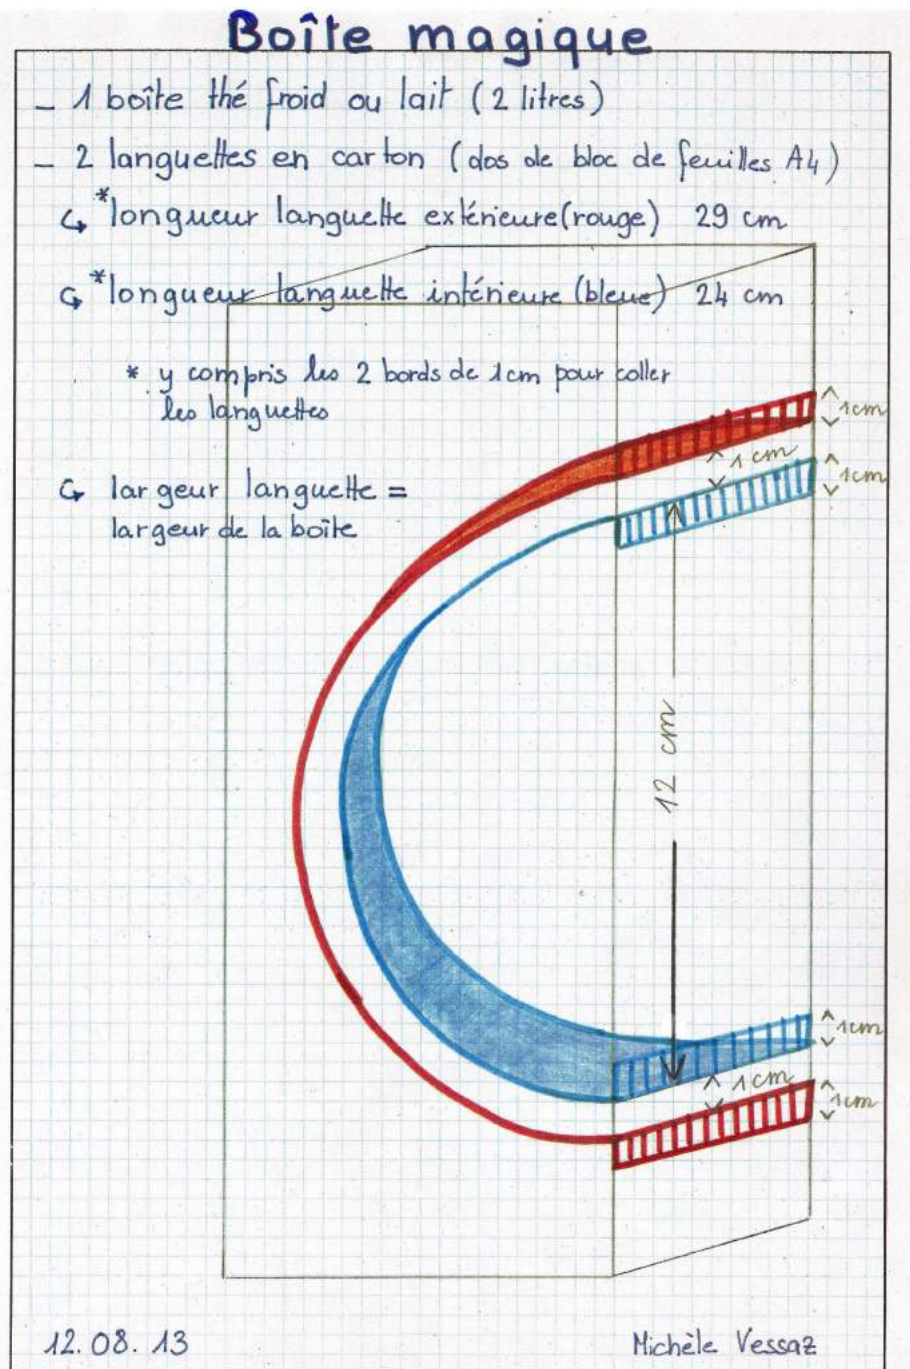 Boîte magique
- 1 boîte thé froid ou lait (2 litres)
- 2 languettes en carton (dos de bloc de feuilles A4)
↳ *longueur languette extérieure (rouge) 29 cm
↳ *longueur languette intérieure (bleue) 24 cm
* y compris les 2 bords de 1cm pour coller
les languettes
↳ largeur languette =
largeur de la boîte
1cm
1cm
1cm
12 cm
1cm
1cm
1cm
12.08.13
Michèle Vessaz